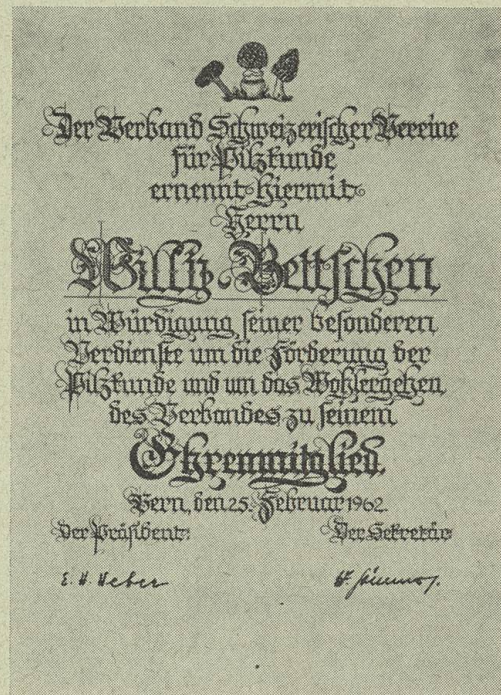 Der Verband Schweizerischer Vereine
für Pilzkunde
ernennt hiermit
Herrn
Willy Bettschen
in Würdigung seiner besonderen
Verdienste um die Förderung der
Pilzkunde und um das Wohlergehen
des Verbandes zu seinem
Ehrenmitglied.
Bern, den 25. Februar 1962.
Der Präsident: Der Sekretär
E. H. Weber